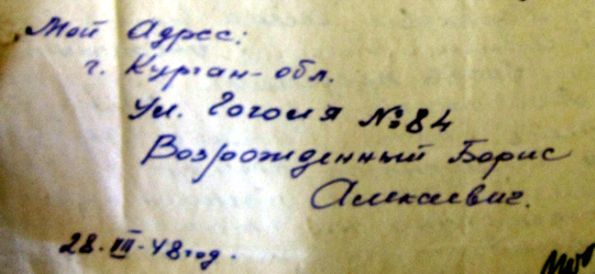 Мой Адрес:
г. Курган-обл.
Ул. Гоголя №84
Возрожденный Борис
Алексеевич.
28. III-48 год.